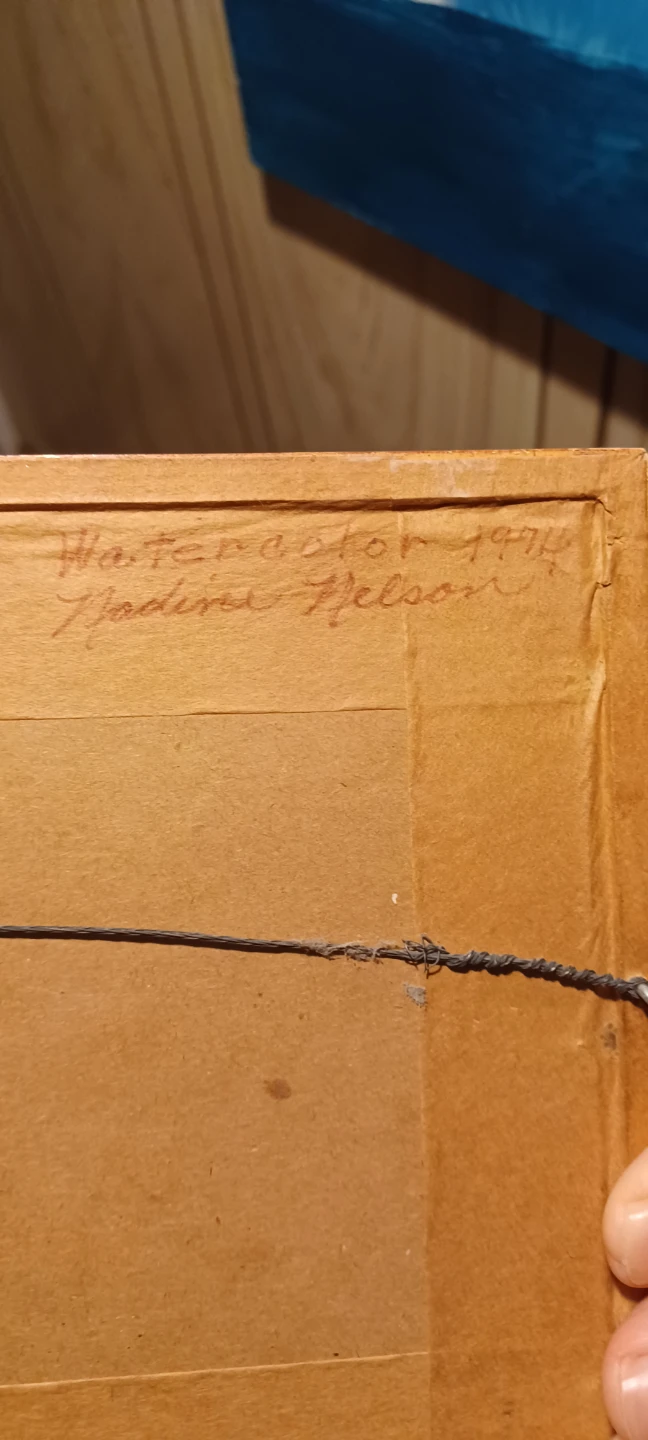 Watercolor 1974
Nadine Nelson